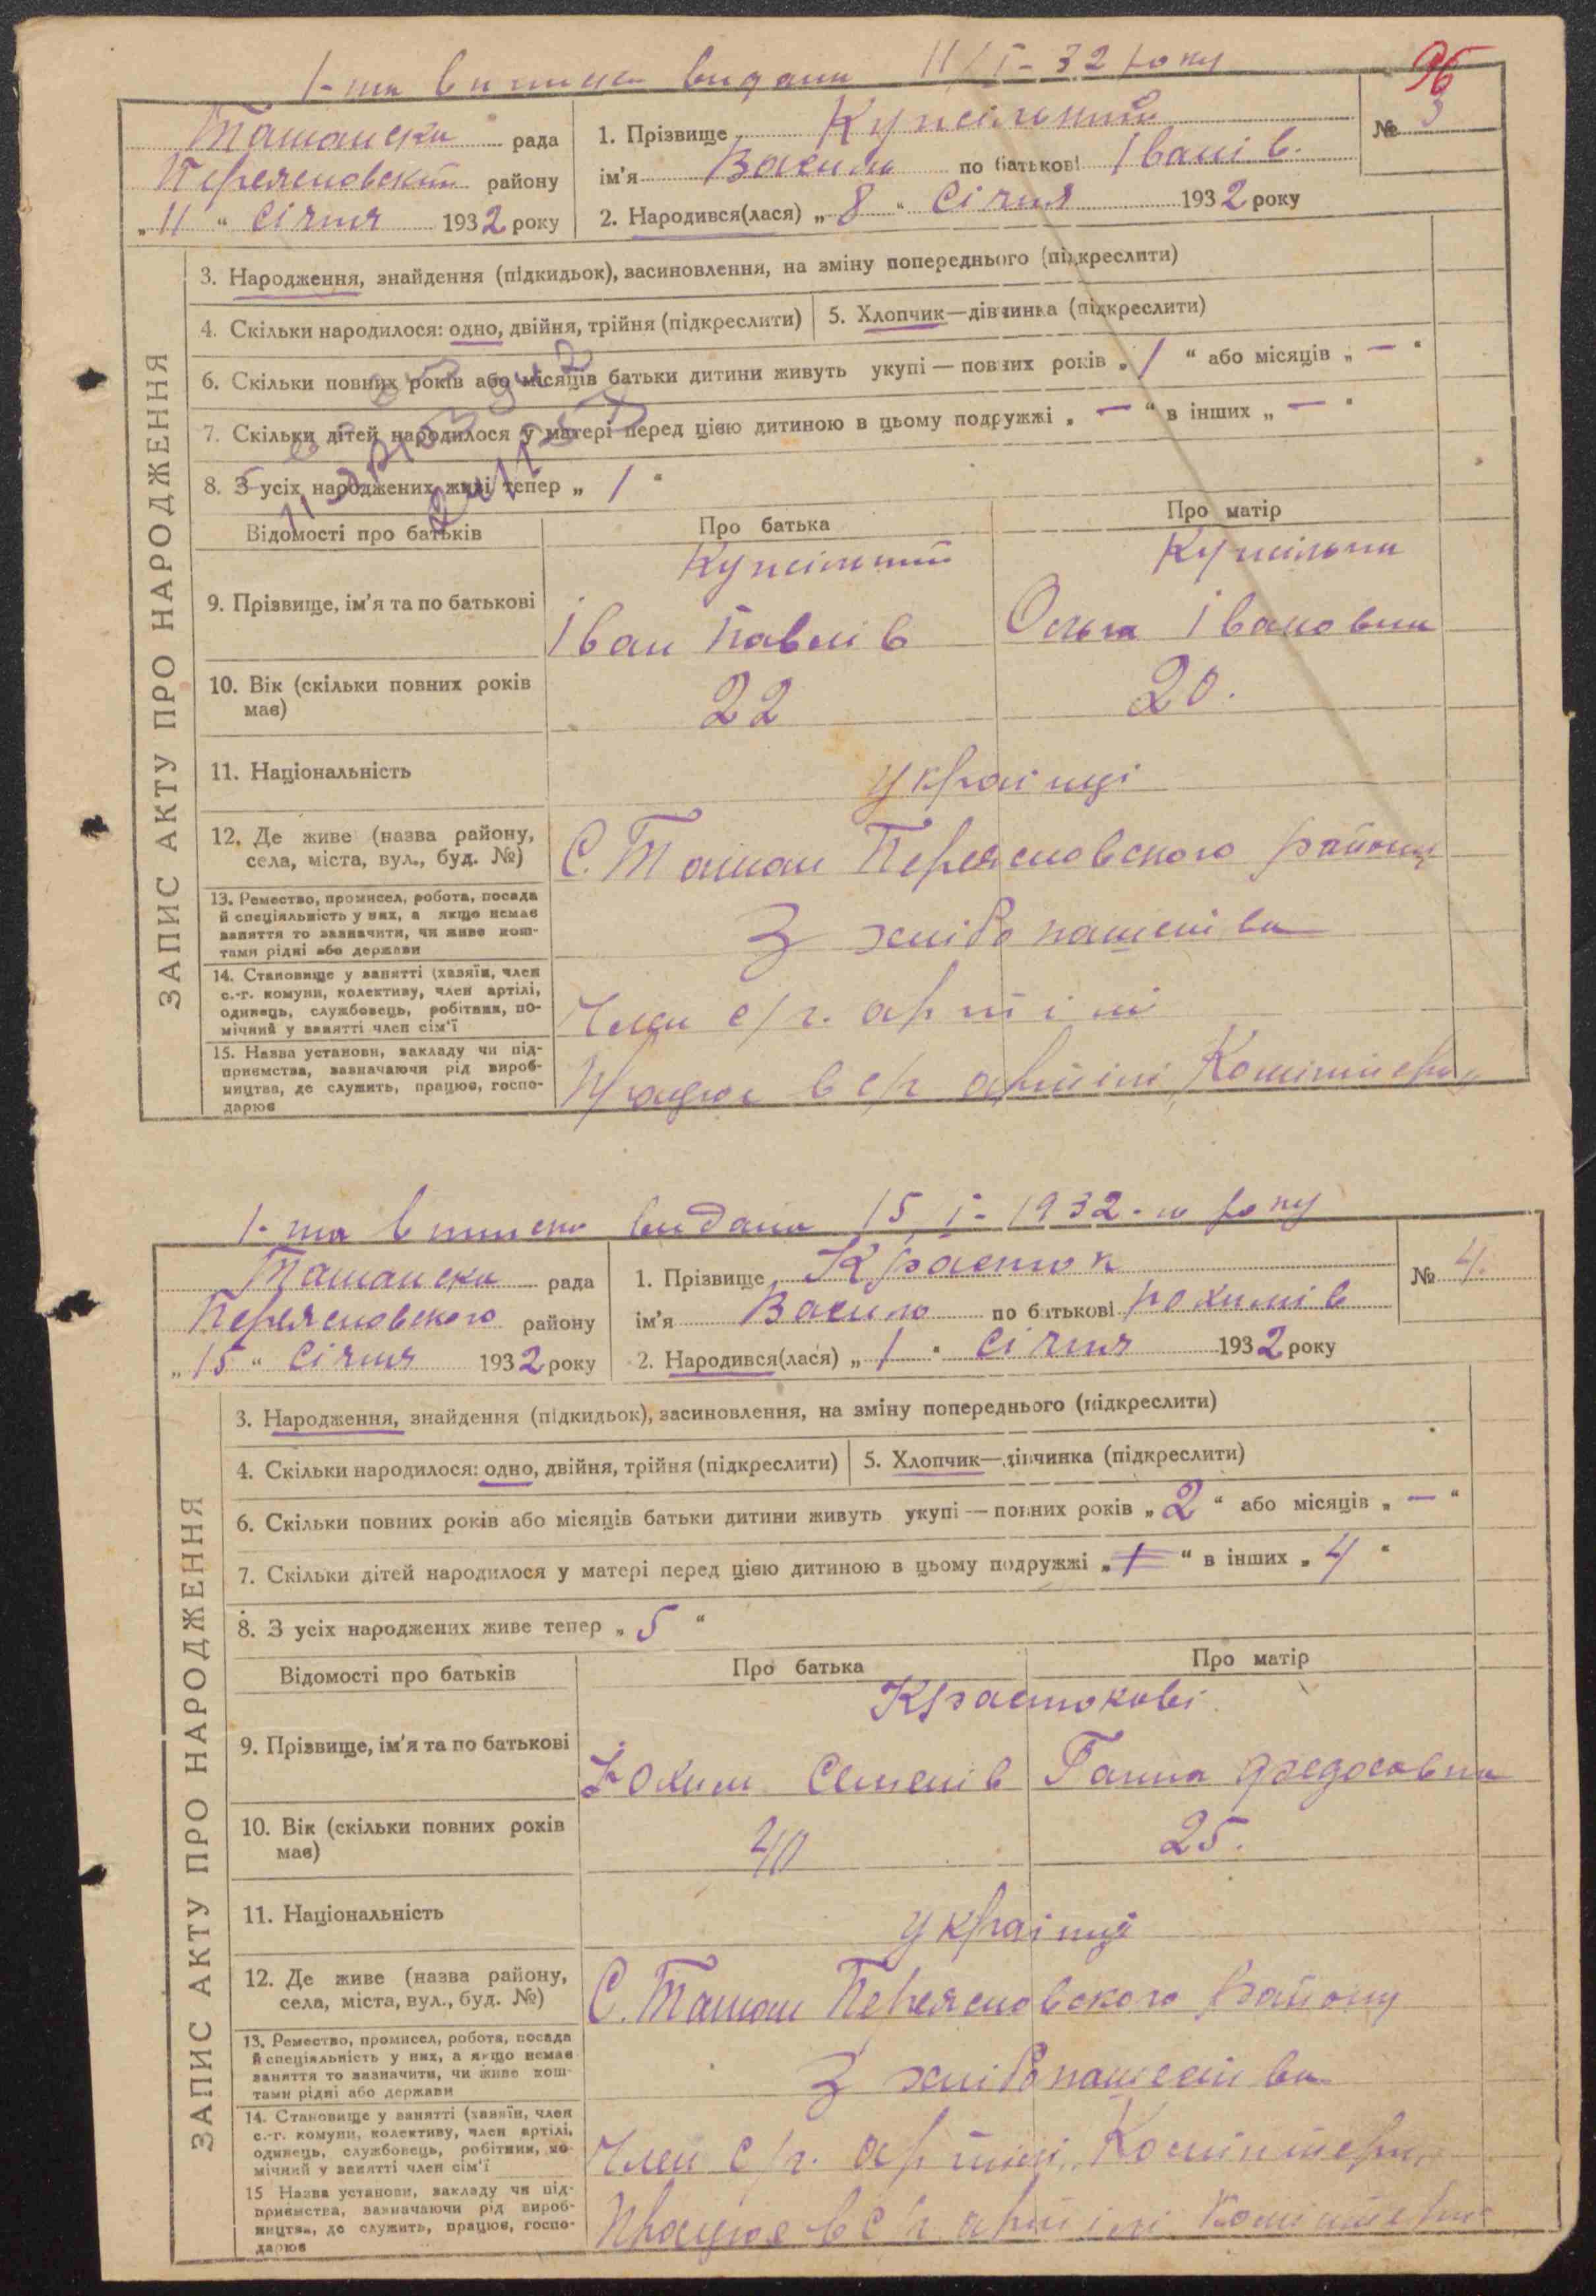 1-ша виписка видана 11/I-32 року
96
Ташанська рада
Переяславський району
„11“ Січня 1932 року
1. Прізвище Кужільний
ім'я Василь по батькові Іванів.
2. Народився(лася) „8“ Січня 1932 року
№ 3
ЗАПИС АКТУ ПРО НАРОДЖЕННЯ
3. Народження, знайдення (підкидьок), засиновлення, на зміну попереднього (підкреслити)
4. Скільки народилося: одно, двійня, трійня (підкреслити)
5. Хлопчик—дівчинка (підкреслити)
6. Скільки повних років або місяців батьки дитини живуть укупі — повних років „1“ або місяців „—“
7. Скільки дітей народилося у матері перед цією дитиною в цьому подружжі „—“ в інших „—“
8. З усіх народжених живі тепер „1“
Відомості про батьків
Про батька
Про матір
9. Прізвище, ім'я та по батькові
Кужільний
Іван Павлів
Кужільна
Ольга Івановна
10. Вік (скільки повних років
має)
22
20.
11. Національність
українці
12. Де живе (назва району,
села, міста, вул., буд. №)
С. Ташань Переяславского району
13. Ремество, промисел, робота, посада
й спеціяльність у них, а якщо немає
заняття то зазначити, чи живе кош-
тами рідні або держави
З хлібопашества
14. Становище у занятті (хазяїн, член
с.-г. комуни, колективу, член артілі,
одинець, службовець, робітник, по-
мічний у занятті член сім'ї
Член с/г. артілі
15. Назва установи, закладу чи під-
приємства, зазначаючи рід вироб-
ництва, де служить, працює, госпо-
дарює
Працює в с/г артілі Комінтерн
1-ша виписка видана 15/I-1932-го року
Ташанська рада
Переяславского району
„15“ Січня 1932 року
1. Прізвище Красток
ім'я Василь по батькові Йохимів
2. Народився(лася) „1“ Січня 1932 року
№ 4.
ЗАПИС АКТУ ПРО НАРОДЖЕННЯ
3. Народження, знайдення (підкидьок), засиновлення, на зміну попереднього (підкреслити)
4. Скільки народилося: одно, двійня, трійня (підкреслити)
5. Хлопчик—дівчинка (підкреслити)
6. Скільки повних років або місяців батьки дитини живуть укупі — повних років „2“ або місяців „—“
7. Скільки дітей народилося у матері перед цією дитиною в цьому подружжі „1“ в інших „4“
8. З усіх народжених живе тепер „5“
Відомості про батьків
Про батька
Про матір
Крастокові
9. Прізвище, ім'я та по батькові
Йохим Семенів
Ганна Федосовна
10. Вік (скільки повних років
має)
40
25.
11. Національність
українці
12. Де живе (назва району,
села, міста, вул., буд. №)
С. Ташань Переяславского району
13. Ремество, промисел, робота, посада
й спеціяльність у них, а якщо немає
заняття то зазначити, чи живе кош-
тами рідні або держави
З хлібопашества
14. Становище у занятті (хазяїн, член
с.-г. комуни, колективу, член артілі,
одинець, службовець, робітник, по-
мічний у занятті член сім'ї
Член с/г. артілі „Комінтерн“
15 Назва установи, закладу чи під-
приємства, зазначаючи рід вироб-
ництва, де служить, працює, госпо-
дарює
Працює в с/г артілі Комінтерн